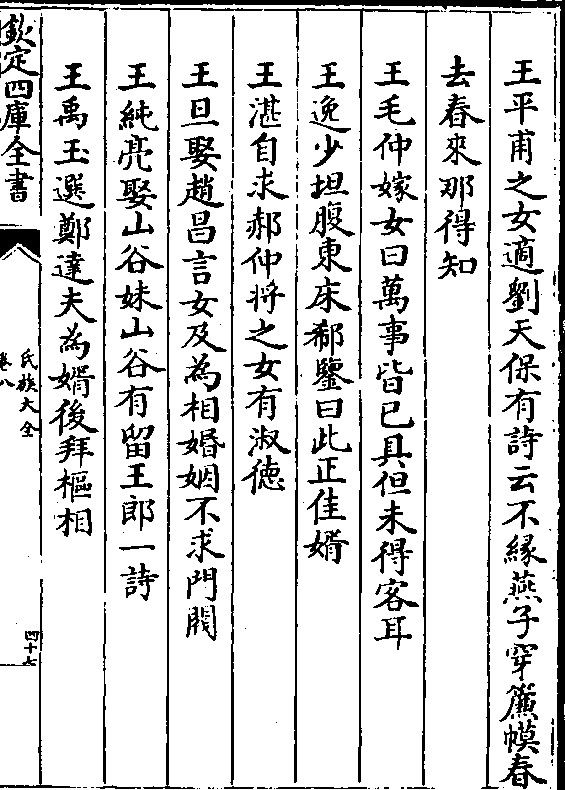 王平甫之女適劉天保有詩云不緣燕子穿簾幙春
去春來那得知
王毛仲嫁女曰萬事皆已具但未得客耳
王逸少坦腹東床郗鑒曰此正佳婿
王湛自求郝仲將之女有淑德
王旦娶趙昌言女及為相婚姻不求門閥
王純亮娶山谷妹山谷有留王郎一詩
王禹玉選鄭達夫為婿後拜樞相
欽定四庫全書
氏族大全
卷八